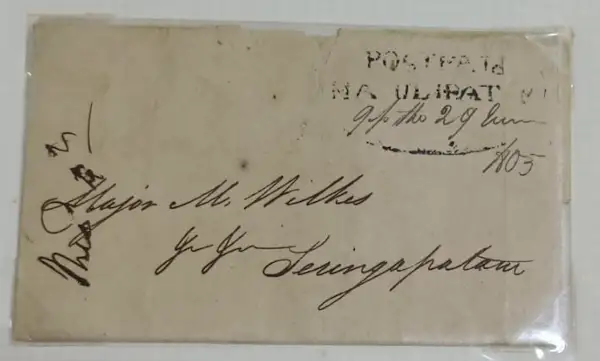 POSTPAID
MA ULIPAT
the 29 June
1805
Major M. Wilkes
Seringapatam